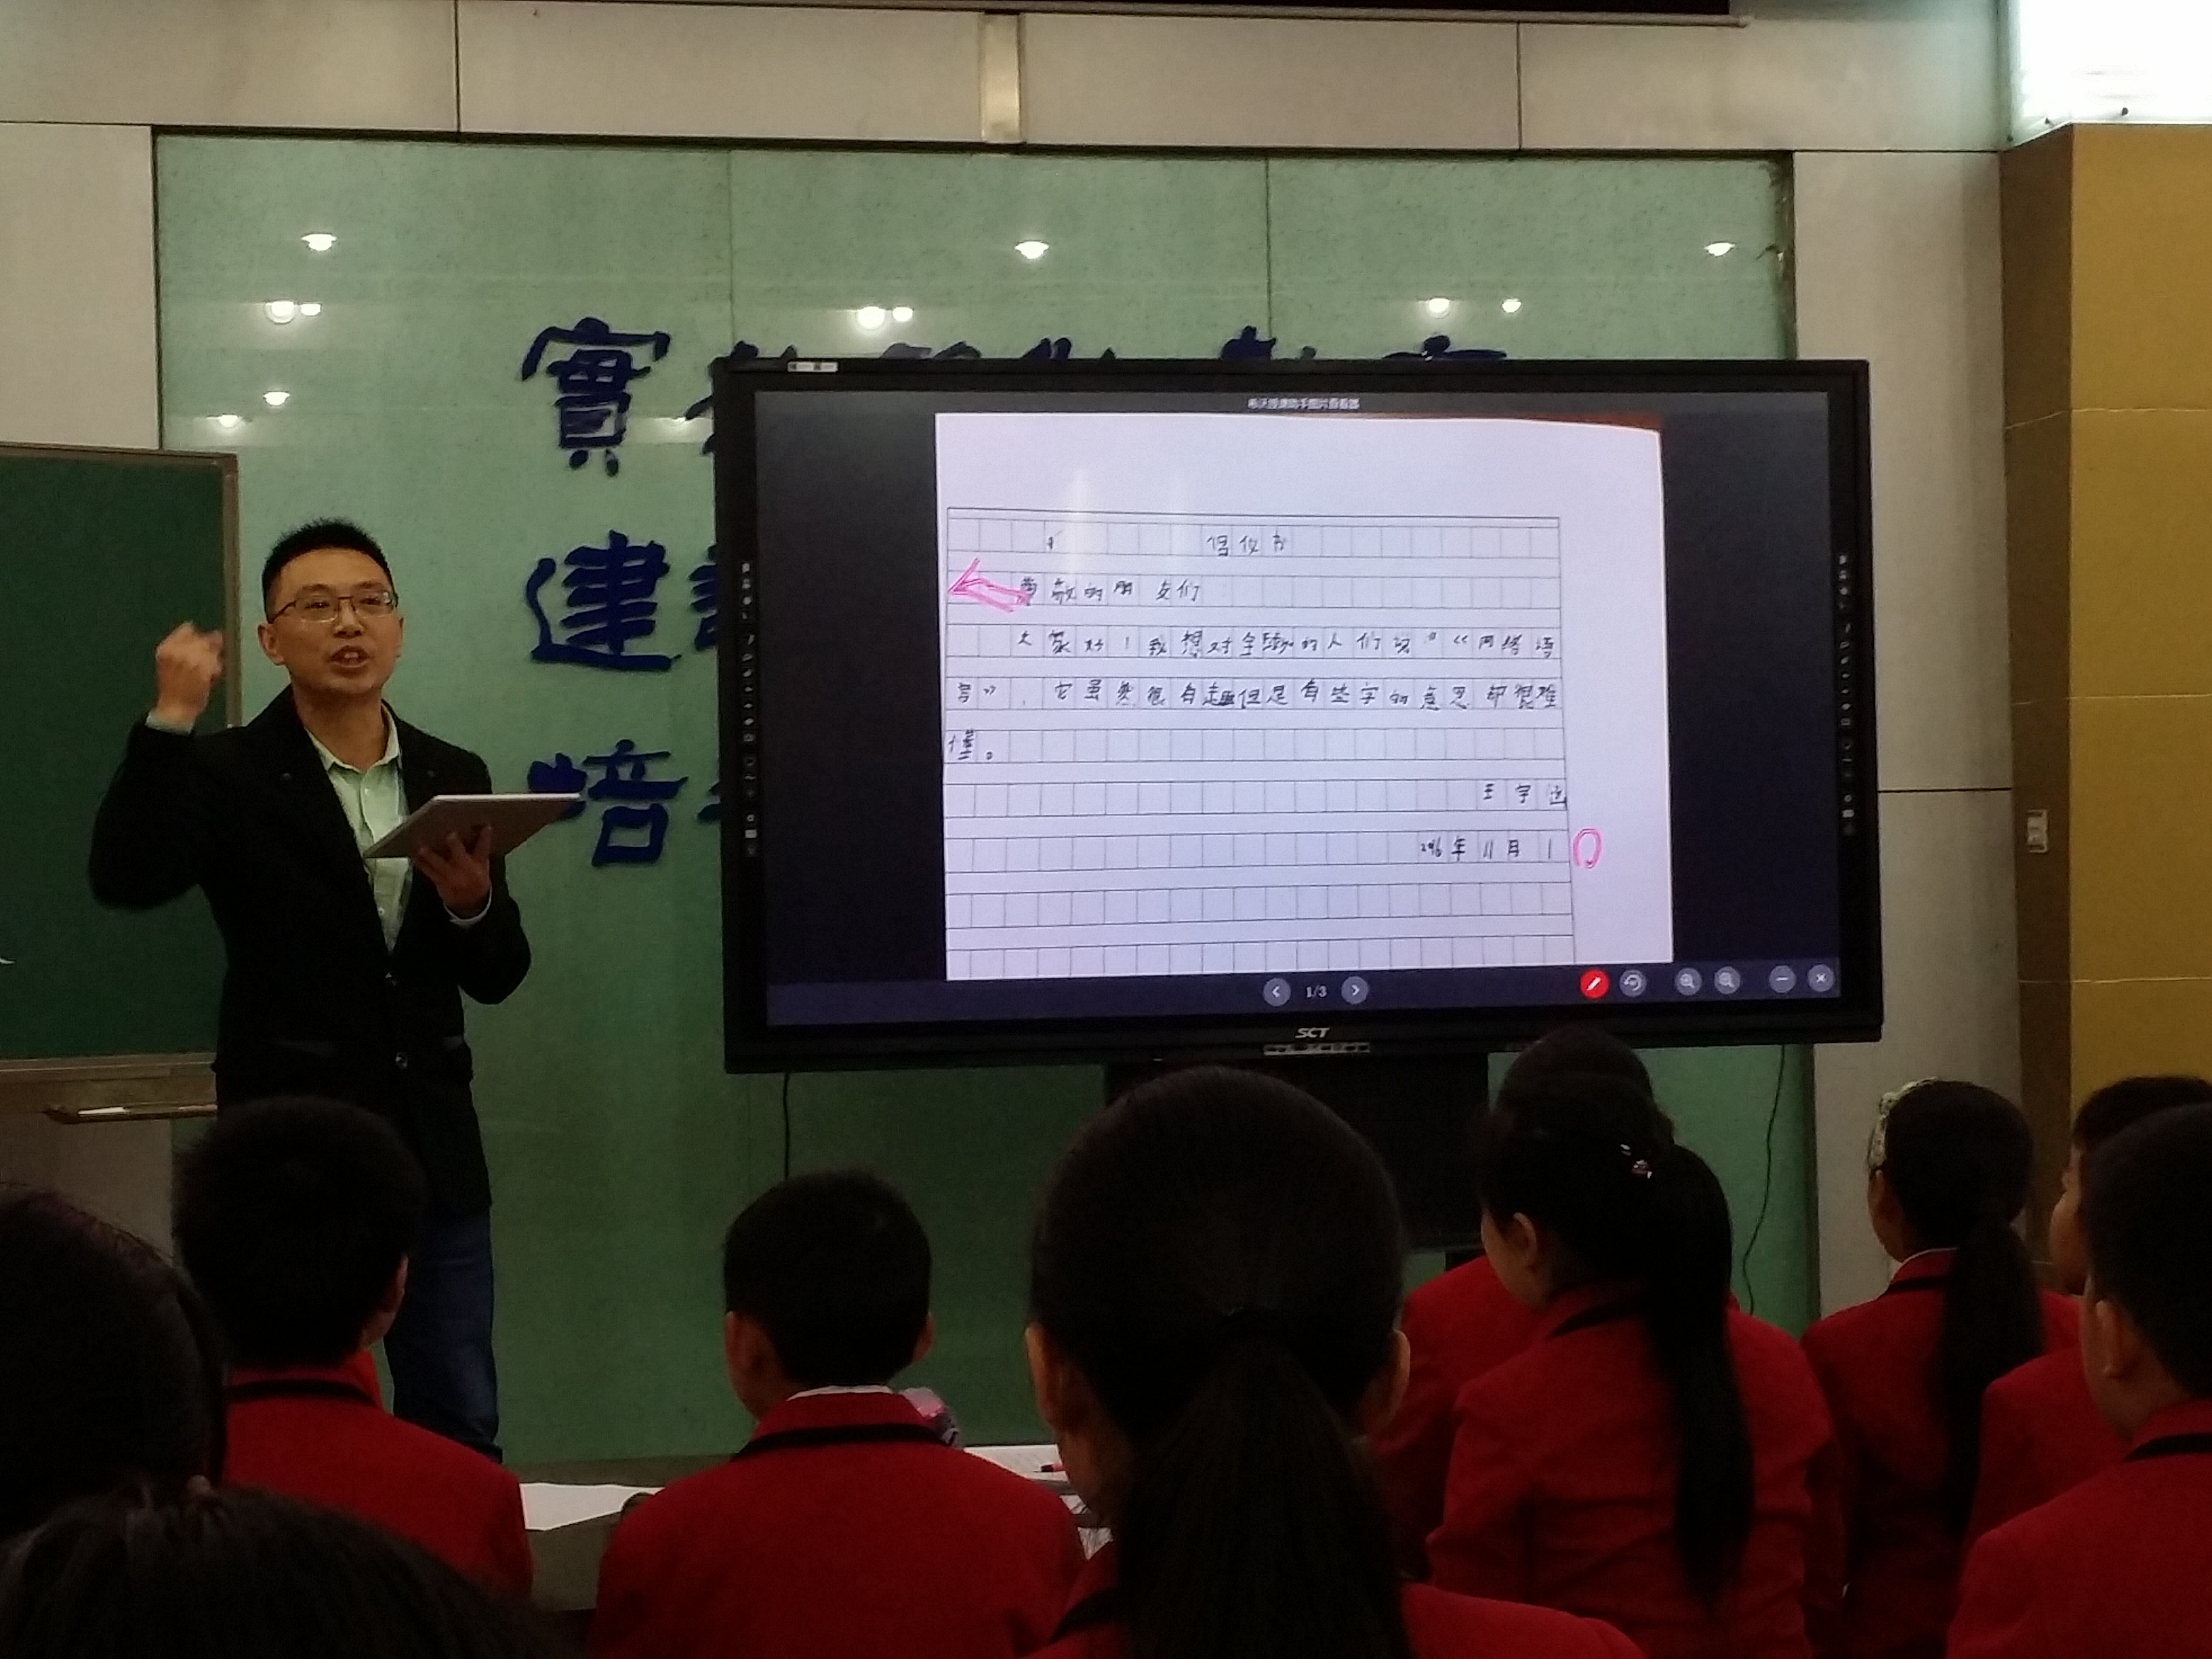 實
建
培
希沃授课助手图片查看器
倡仪书
尊敬的朋友们:
大家好!我想对全聊的人们说:“《网络语
言》”,它虽然很有趣但是有些字的意思却很难
懂。
王宇
2016年11月10
1/3
SCT